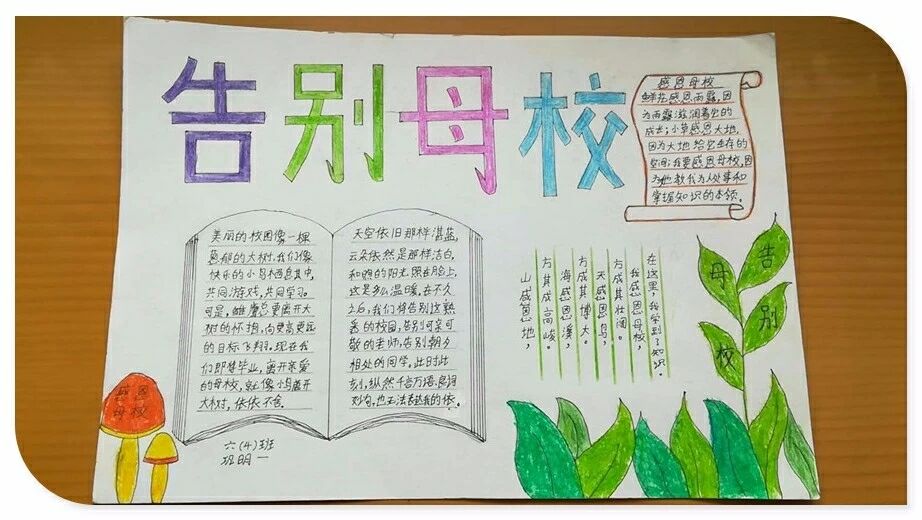 告别母校
感恩母校
鲜花感恩雨露,因
为雨露滋润着它的
成长;小草感恩大地,
因为大地给它生存的
空间;我要感恩母校,因
为她教我为人处事和
掌握知识的本领。
美丽的校园像一棵
葱郁的大树,我们像
快乐的小鸟栖息其中,
共同游戏,共同学习。
可是,雏鹰总要离开大
树的怀抱,向更高更远
的目标飞翔。现在我
们即将毕业,离开亲爱
的母校,就像小鸟离开
大树,依依不舍。
天空依旧那样湛蓝,
云朵依然是那样洁白,
和煦的阳光照在脸上,
这是多么温暖。在不久
之后,我们将告别这熟
悉的校园,告别可亲可
敬的老师,告别朝夕
相处的同学。此时此
刻,纵然千言万语,良词
妙句,也无法表达我的依。
在这里,我学到了知识。
我感恩母校,
方成其壮阔。
天感恩鸟,
方成其博大。
海感恩溪,
方其成高峻。
山感恩地,
告别
母校
感恩
母校
六(4)班
班明一